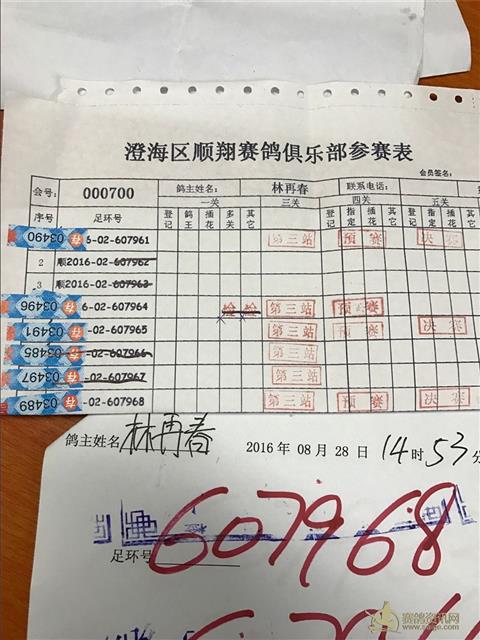 澄海区顺翔赛鸽俱乐部参赛表
会员签名:
会号: 000700 鸽主姓名: 林再春 联系电话:
一关 三关 四关 五关
序号 足环号 登记 鸽王 插花 多关 其它 登记 指定 插花 其它 登记 指定
03490 存 6-02-607961 第三站 预赛 决赛
2 顺2016-02-607962
3 顺2016-02-607963
03496 存 6-02-607964 第三站 预赛
03491 存 -02-607965 第三站 预赛 决赛
03485 存 -02-607966 第三站
03497 存 -02-607967 第三站
03489 存 -02-607968 第三站 预赛 决赛
鸽主姓名 林再春 2016 年 08 月 28 日 14 时 53 分
足环号 607968
赛鸽资讯网